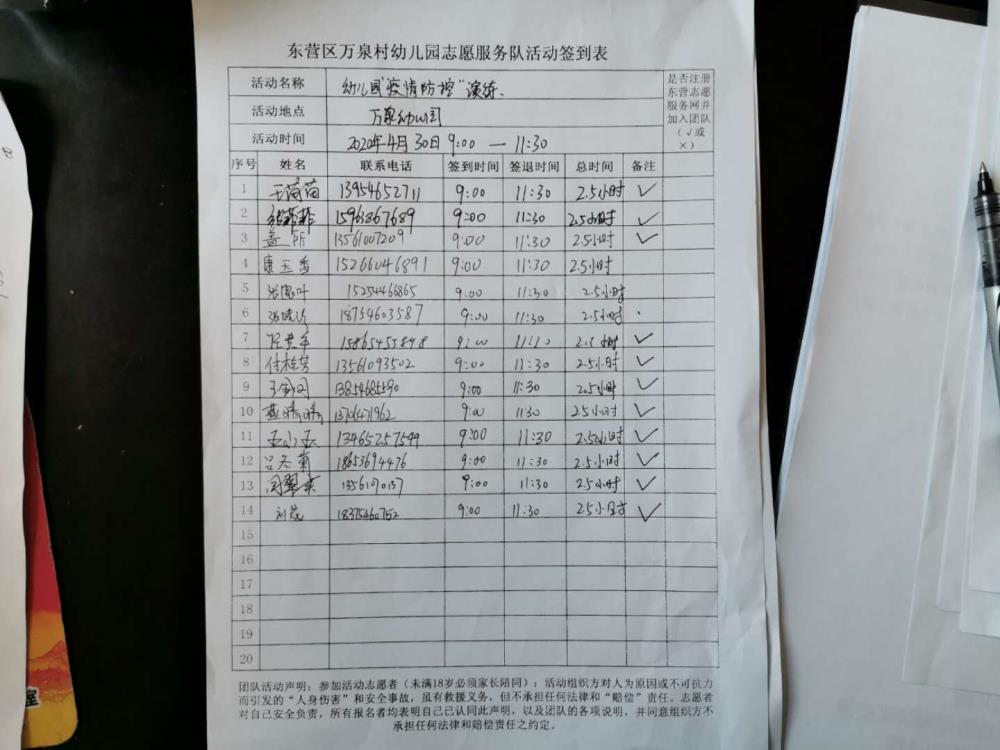 东营区万泉村幼儿园志愿服务队活动签到表
活动名称 幼儿园“疫情防控”演练、 是否注册东营志愿服务网并加入团队（√或×）
活动地点 万泉幼儿园
活动时间 2020年4月30日9:00 — 11:30
序号 姓名 联系电话 签到时间 签退时间 总时间 备注
1 13954652711 9:00 11:30 2.5小时 ✓
2 15968867689 9:00 11:30 2.5小时 ✓
3 13561007209 9:00 11:30 2.5小时 ✓
4 康玉香 15266046891 9:00 11:30 2.5小时
5 15254466865 9:00 11:30 2.5小时
6 18754603587 9:00 11:30 2.5小时
7 15865455848 9:00 2.5小时 ✓
8 付桂芳 13561093502 9:00 11:30 2.5小时 ✓
9 13854685590 9:00 11:30 2.5小时 ✓
10 燕晴晴 13706471962 9:00 11:30 2.5小时 ✓
11 13465257599 9:00 11:30 2.5小时 ✓
12 吕冬菊 18653694476 9:00 11:30 2.5小时 ✓
13 9:00 11:30 2.5小时 ✓
14 18375460752 9:00 11:30 2.5小时 ✓
15
16
17
18
19
20
团队活动声明：参加活动志愿者（未满18岁必须家长陪同）：活动组织方对人为原因或不可抗力
而引发的“人身伤害”和安全事故，虽有救援义务，但不承担任何法律和“赔偿”责任。志愿者
对自己安全负责，所有报名者均表明自己已认同此声明，以及团队的各项说明，并同意组织方不
承担任何法律和赔偿责任之约定。